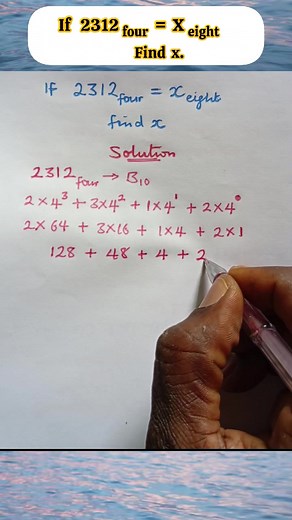 If 2312 four = X eight
Find x.
If 2312four = xeight
find x
Solution
2312four → B10
2×4³ + 3×4² + 1×4¹ + 2×4⁰
2×64 + 3×16 + 1×4 + 2×1
128 + 48 + 4 + 2